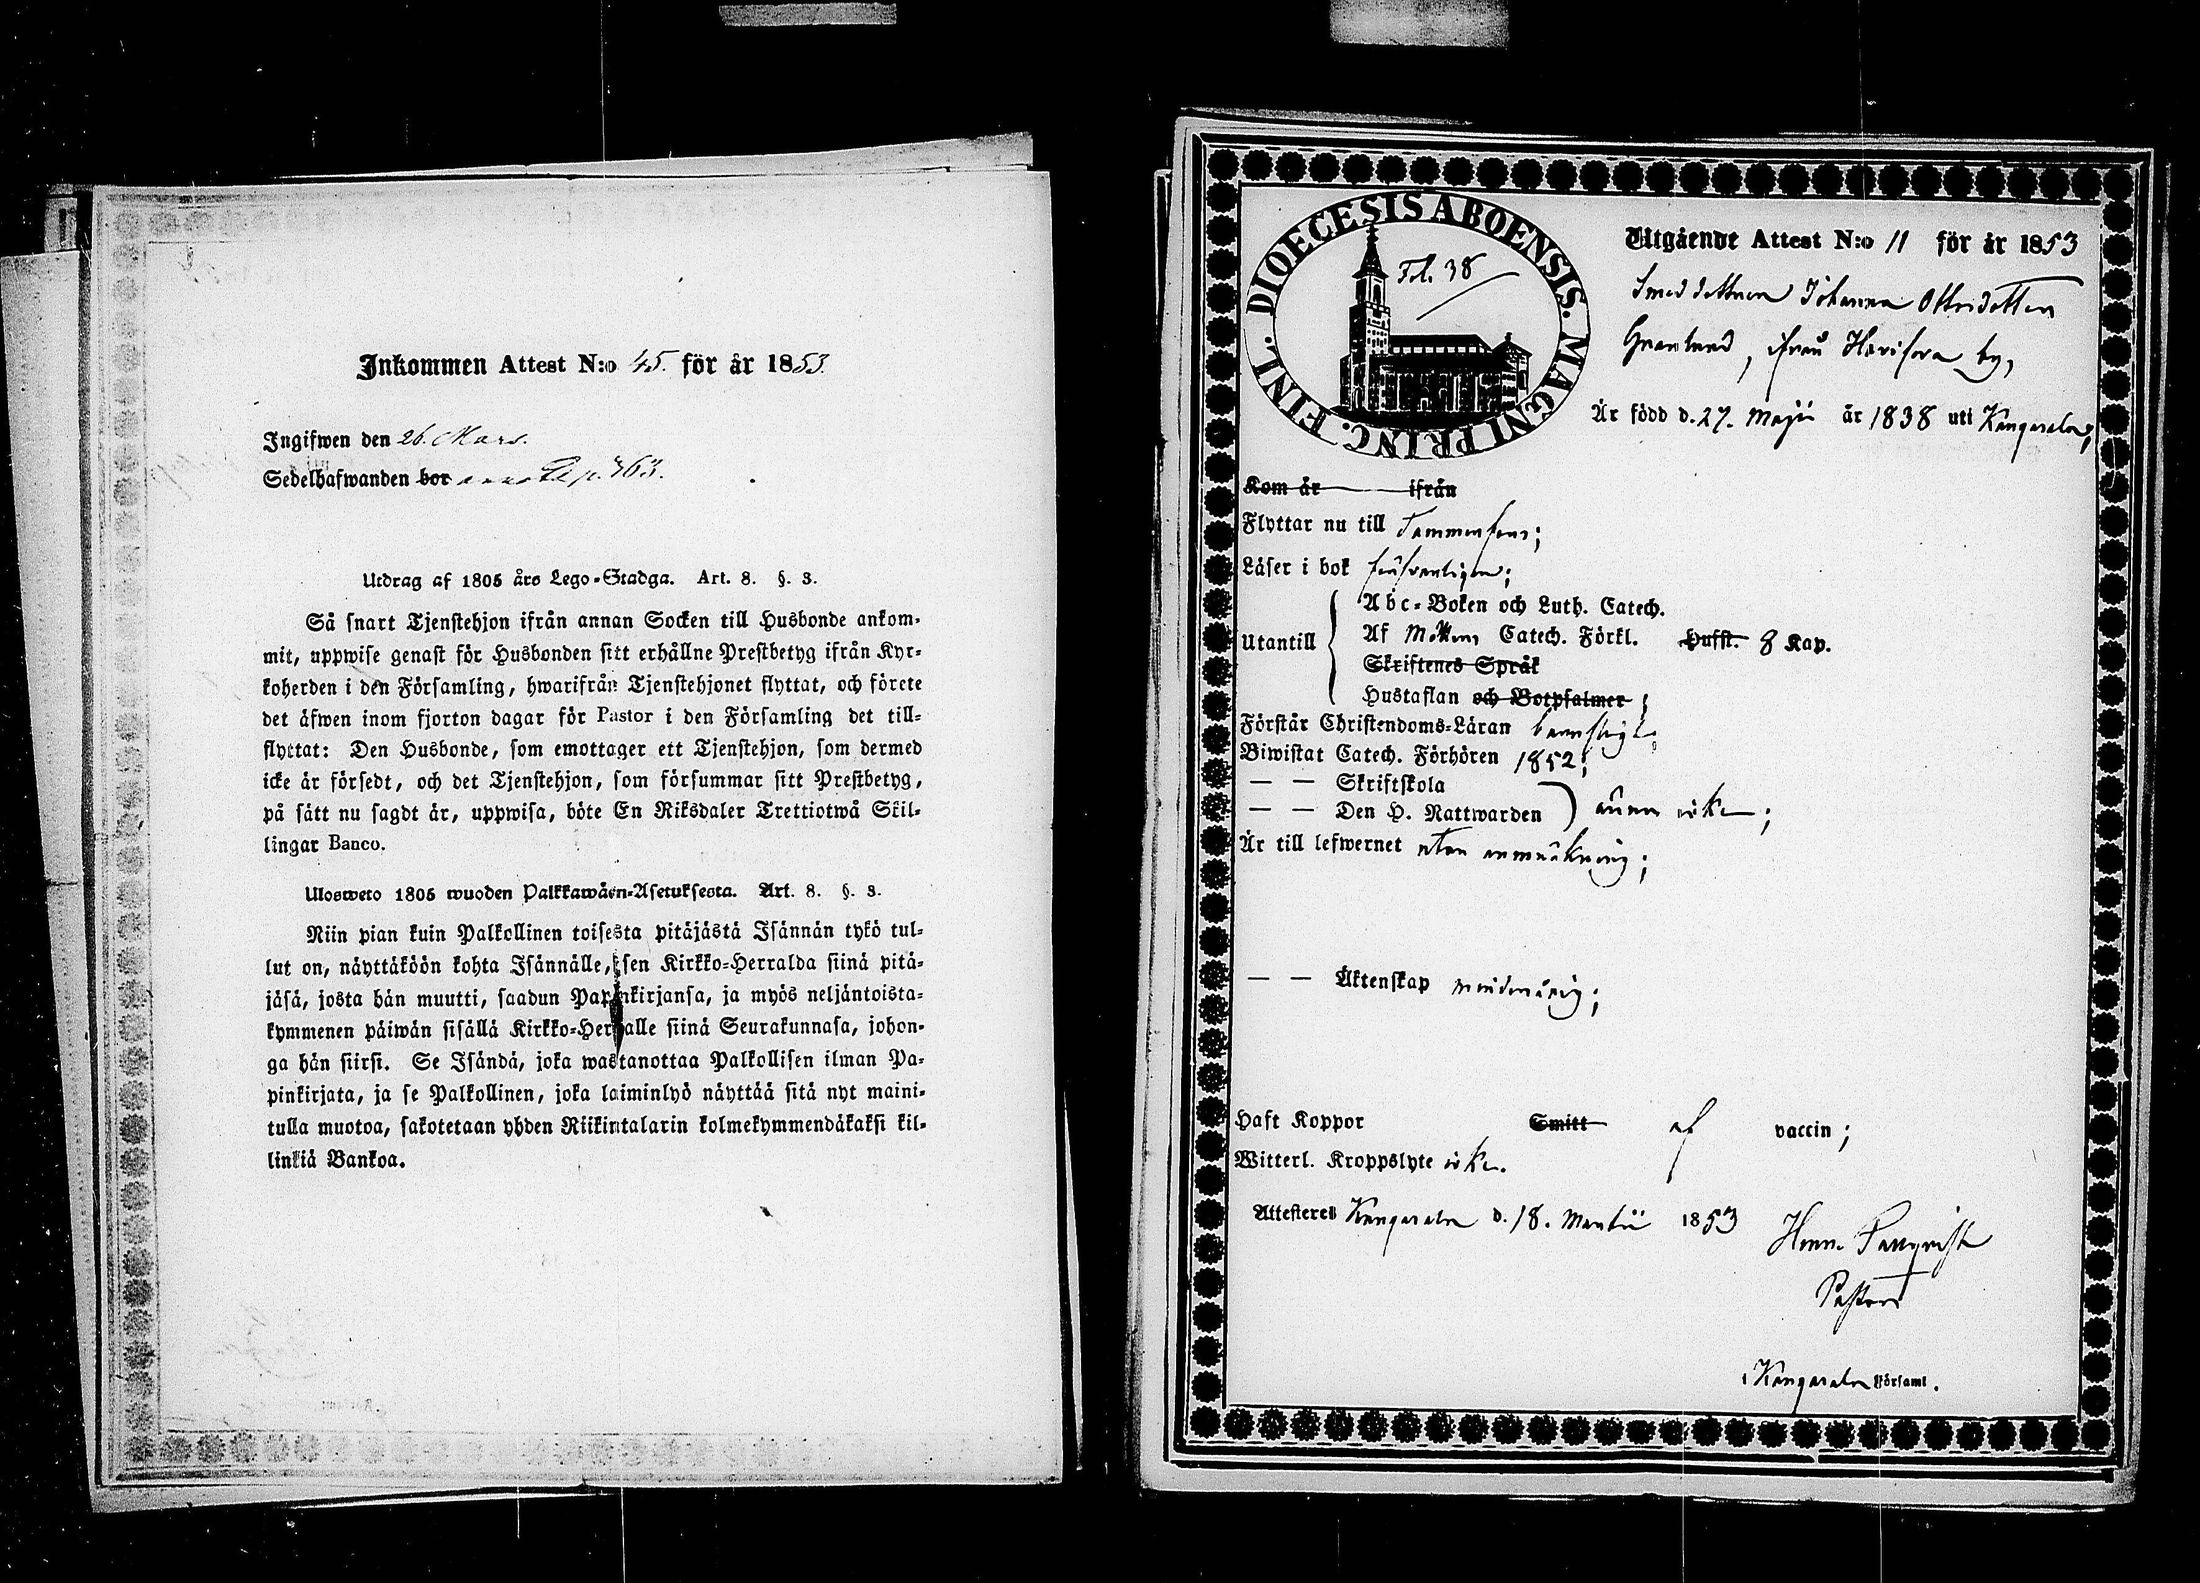 Inkommen Attest N:o 45. för år 1853.
Ingifwen den 26. Mars.
Sedelhafwanden bor p. 763.
Utdrag af 1805 års Lego-Stadga. Art. 8. §. 3.
Så snart Tjenstehjon ifrån annan Socken till Husbonde ankom-
mit, uppwise genast för Husbonden sitt erhållne Prestbetyg ifrån Kyr-
koherden i den Församling, hwarifrån Tjenstehjonet flyttat, och förete
det äfwen inom fjorton dagar för Pastor i den Församling det till-
flyttat: Den Husbonde, som emottager ett Tjenstehjon, som dermed
icke är försedt, och det Tjenstehjon, som försummar sitt Prestbetyg,
på sätt nu sagdt är, uppwisa, böte En Riksdaler Trettiotwå Skil-
lingar Banco.
Ulosweto 1805 wuoden Palkkawäen-Asetuksesta. Art. 8. §. 3.
Niin pian kuin Palkollinen toisesta pitäjästä Isännän tykö tul-
lut on, näyttäköön kohta Isännälle, sen Kirkko-Herralda siinä pitä-
jäsä, josta hän muutti, saadun Papinkirjansa, ja myös neljäntoista-
kymmenen päiwän sisällä Kirkko-Herralle siinä Seurakunnasa, johon-
ga hän siirsi. Se Isändä, joka wastanottaa Palkollisen ilman Pa-
pinkirjata, ja se Palkollinen, joka laiminlyö näyttää sitä nyt maini-
tulla muotoa, sakotetaan yhden Riikintalarin kolmekymmendäkaksi kil-
linkiä Bankoa.
DIOECESIS ABOENSIS. MAGNI PRINC. FINL.
Fol. 38
Utgående Attest N:o 11 för år 1853
Smeddottren Johanna Ottosdotter
Granlund, ifrån Havisova by,
Är född d. 27. Maji år 1838 uti Kangasala;
Kom år ifrån
Flyttar nu till Tammerfors;
Läser i bok försvarligen;
Abc-Boken och Luth. Catech.
Utantill Af Möllers Catech. Förkl. Hufst. 8 Kap.
Skriftenes Språk
Hustaflan och Botpsalmer;
Förstår Christendoms-Läran
Biwistat Catech. Förhören 1852;
— — Skriftskola
— — Den H. Nattwarden ännu icke;
Är till lefwernet utan anmärkning;
— — Äktenskap minderårig;
Haft Koppor Smitt af vaccin;
Witterl. Kroppslyte icke.
Attesterer Kangasala d. 18. Martii 1853
Pastor
i Kangasala Församl.